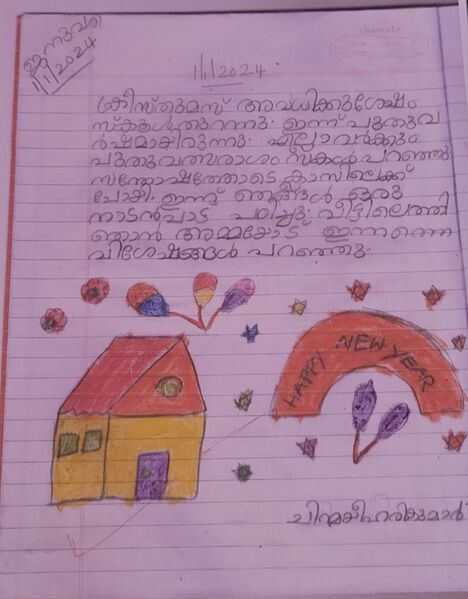 ജനുവരി
1/1/2024
1/1/2024
ക്രിസ്തുമസ് അവധിക്കുശേഷം
സ്കൂൾതുറന്നു. ഇന്ന് പുതുവ
ർഷമായിരുന്നു. എല്ലാവർക്കും
പുതുവത്സരാശംസകൾപറഞ്ഞു.
സന്തോഷത്തോടെ ക്ലാസിലേക്ക്
പോയി. ഇന്ന് ഞങ്ങൾ ഒരു
നാടൻപാട്ട് പഠിച്ചു. വീട്ടിലെത്തി
ഞാൻ അമ്മയോട് ഇന്നത്തെ
വിശേഷങ്ങൾ പറഞ്ഞു.
HAPPY NEW YEAR
classmate